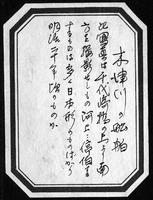 木津川の船舶
此図写真は千代崎橋の上より南
方を撮影せしもの河上に停泊する
ものは多く日本形のものばかり
明治二十年頃のものか